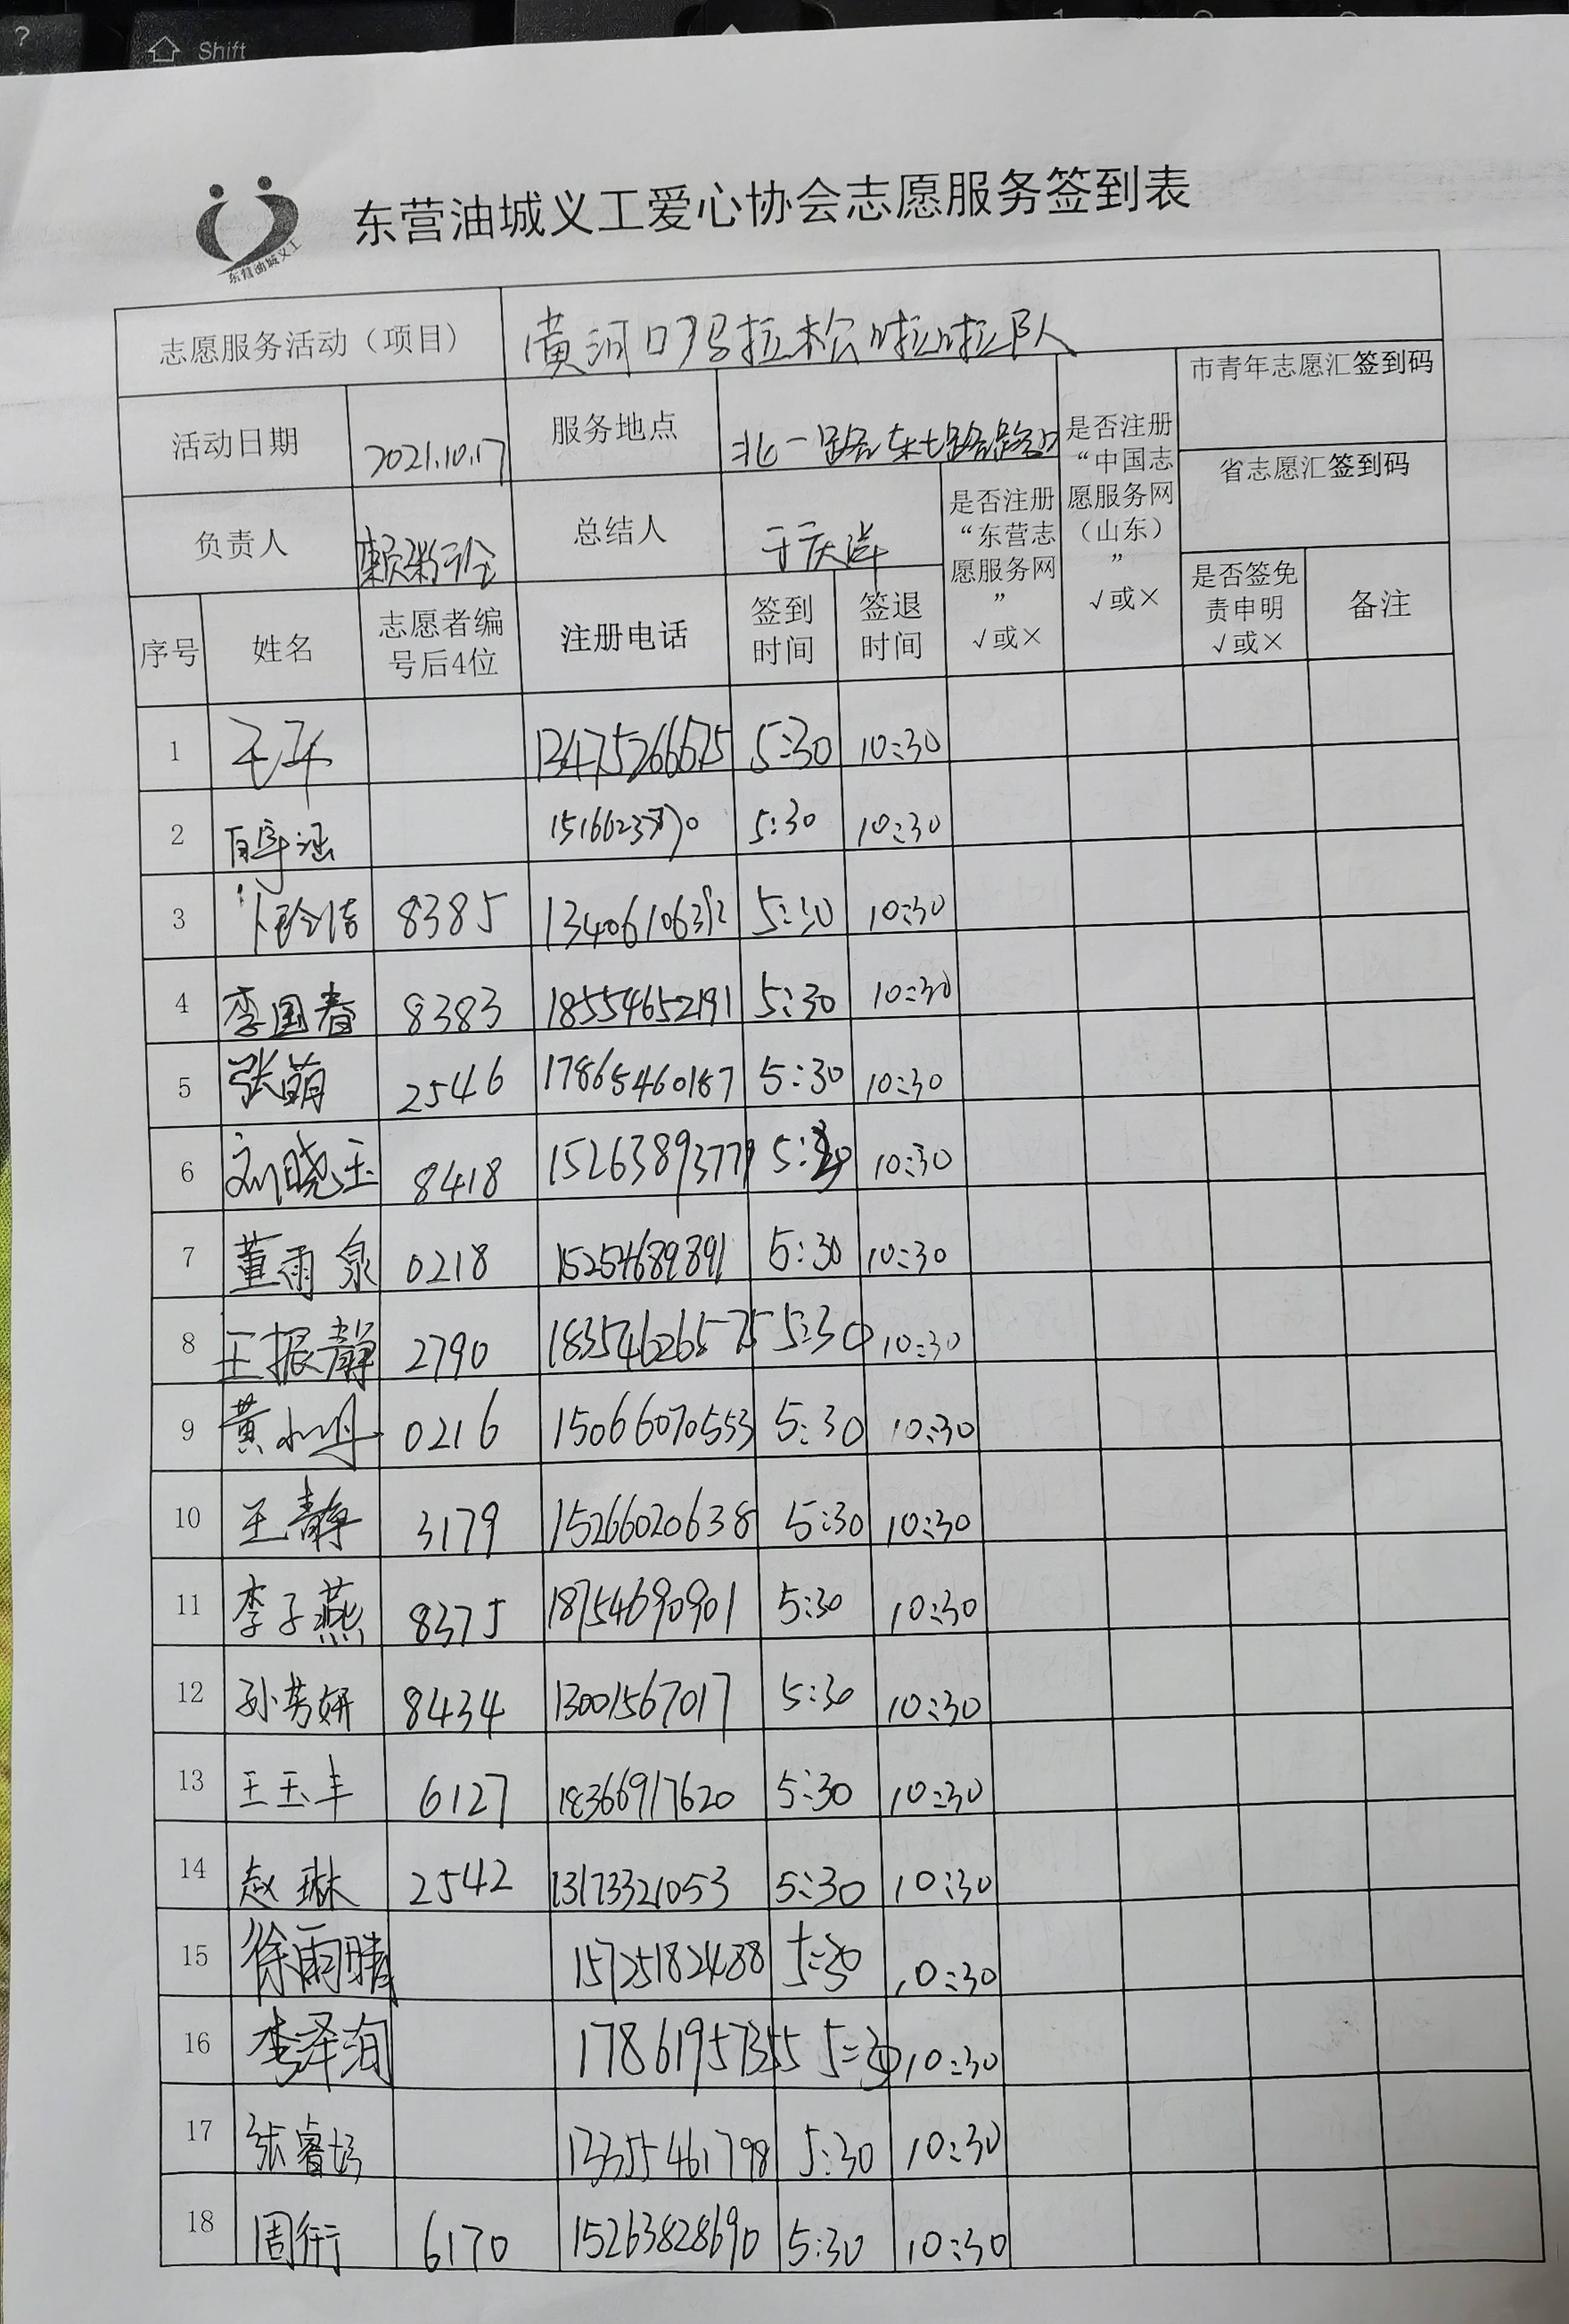 Shift
东营油城义工
东营油城义工爱心协会志愿服务签到表
志愿服务活动（项目） 黄河口马拉松啦啦队
活动日期 2021.10.17 服务地点 北一路东七路路口
是否注册“中国志愿服务网（山东）” √或×
市青年志愿汇签到码
省志愿汇签到码
负责人 总结人 于庆洋
是否注册“东营志愿服务网” √或×
是否签免责申明 √或×
备注
序号 姓名 志愿者编号后4位 注册电话 签到时间 签退时间
1 13475266675 5:30 10:30
2 5:30 10:30
3 8385 13406106392 5:30 10:30
4 李国春 8383 18554652191 5:30 10:30
5 张萌 2546 17865460187 5:30 10:30
6 刘晓玉 8418 15263893779 5:30 10:30
7 董雨泉 0218 15254689891 5:30 10:30
8 王振静 2790 18354626575 5:30 10:30
9 黄 0216 15066070553 5:30 10:30
10 王静 3179 15266020638 5:30 10:30
11 李子燕 8375 18754690901 5:30 10:30
12 孙芳妍 8434 13001567017 5:30 10:30
13 王玉丰 6127 18366917620 5:30 10:30
14 赵琳 2542 13173321053 5:30 10:30
15 徐雨晴 15725182488 5:30 10:30
16 李泽洵 17861957355 5:30 10:30
17 张睿 13355461798 5:30 10:30
18 周衍 6170 15263828690 5:30 10:30